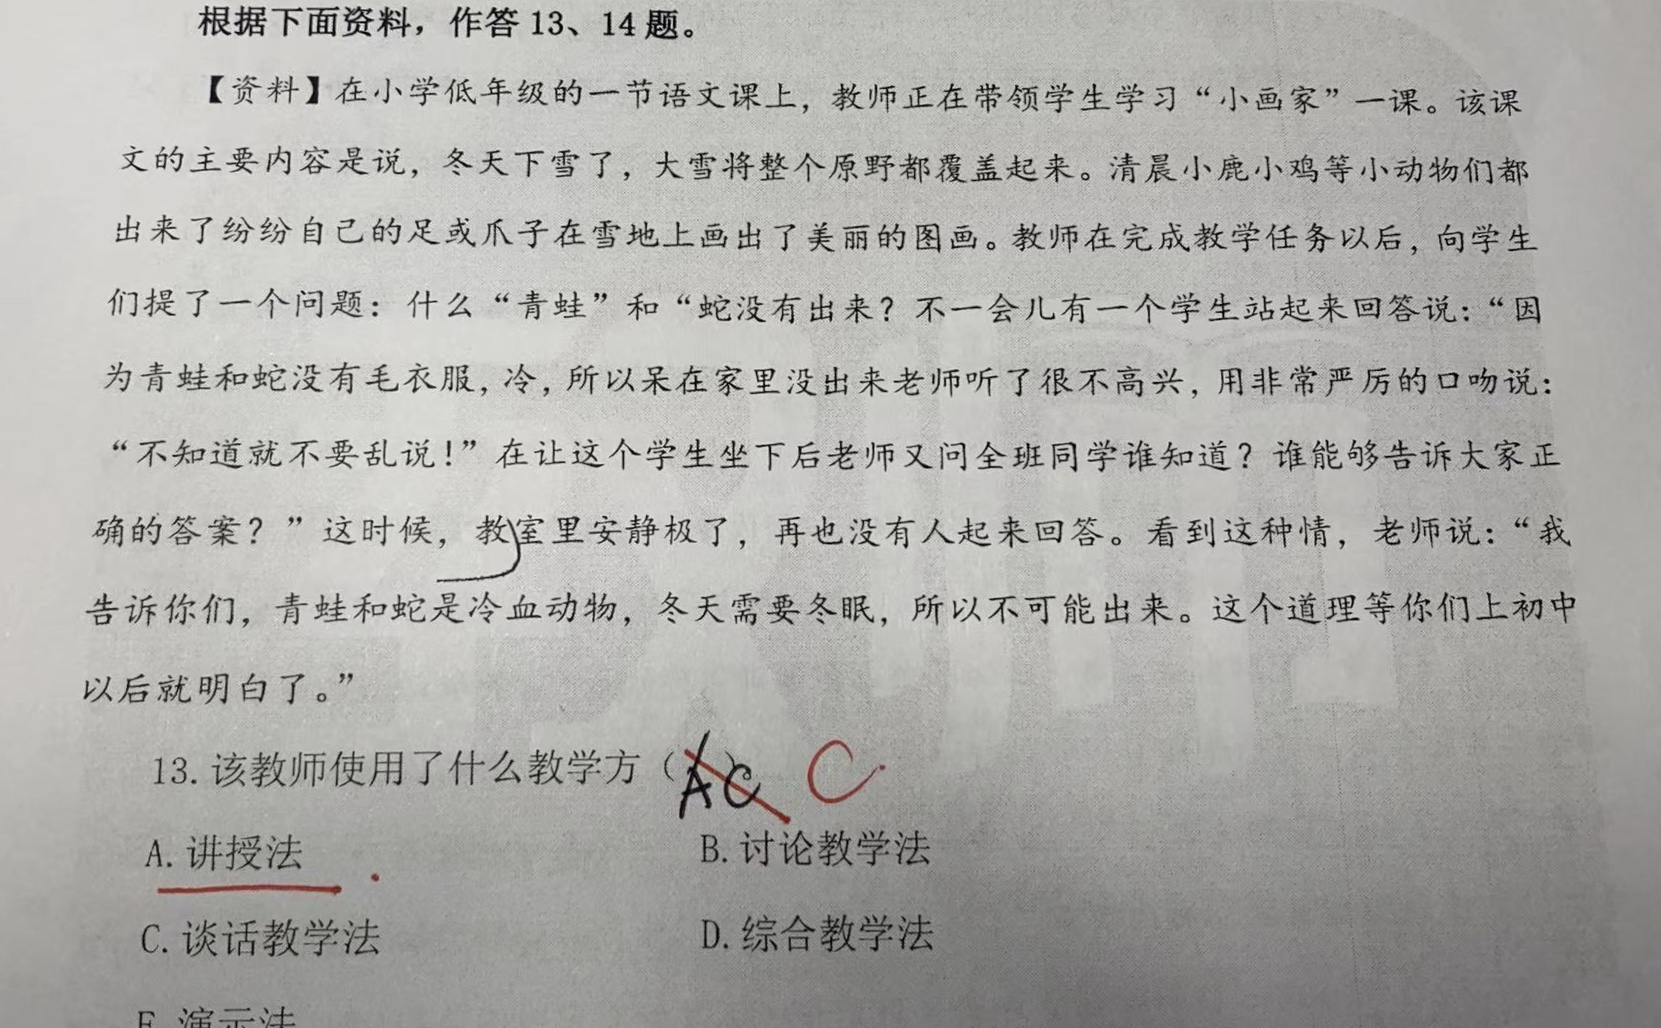 根据下面资料，作答 13、14 题。
【资料】在小学低年级的一节语文课上，教师正在带领学生学习“小画家”一课。该课
文的主要内容是说，冬天下雪了，大雪将整个原野都覆盖起来。清晨小鹿小鸡等小动物们都
出来了纷纷自己的足或爪子在雪地上画出了美丽的图画。教师在完成教学任务以后，向学生
们提了一个问题：什么“青蛙”和“蛇没有出来？不一会儿有一个学生站起来回答说：“因
为青蛙和蛇没有毛衣服，冷，所以呆在家里没出来老师听了很不高兴，用非常严厉的口吻说：
“不知道就不要乱说！”在让这个学生坐下后老师又问全班同学谁知道？谁能够告诉大家正
确的答案？”这时候，教室里安静极了，再也没有人起来回答。看到这种情，老师说：“我
告诉你们，青蛙和蛇是冷血动物，冬天需要冬眠，所以不可能出来。这个道理等你们上初中
以后就明白了。”
13. 该教师使用了什么教学方（AC） C
A. 讲授法 B. 讨论教学法
C. 谈话教学法 D. 综合教学法
E. 演示法